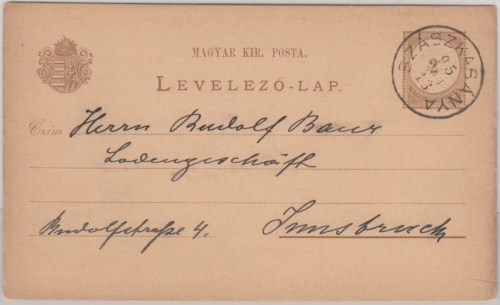 MAGYAR KIR. POSTA.
LEVELEZŐ-LAP.
SZÁSZKABÁNYA
85
2
13
Czím Herrn Rudolf Baur
Lodengeschäft
Rudolfstraße 4. Innsbruck